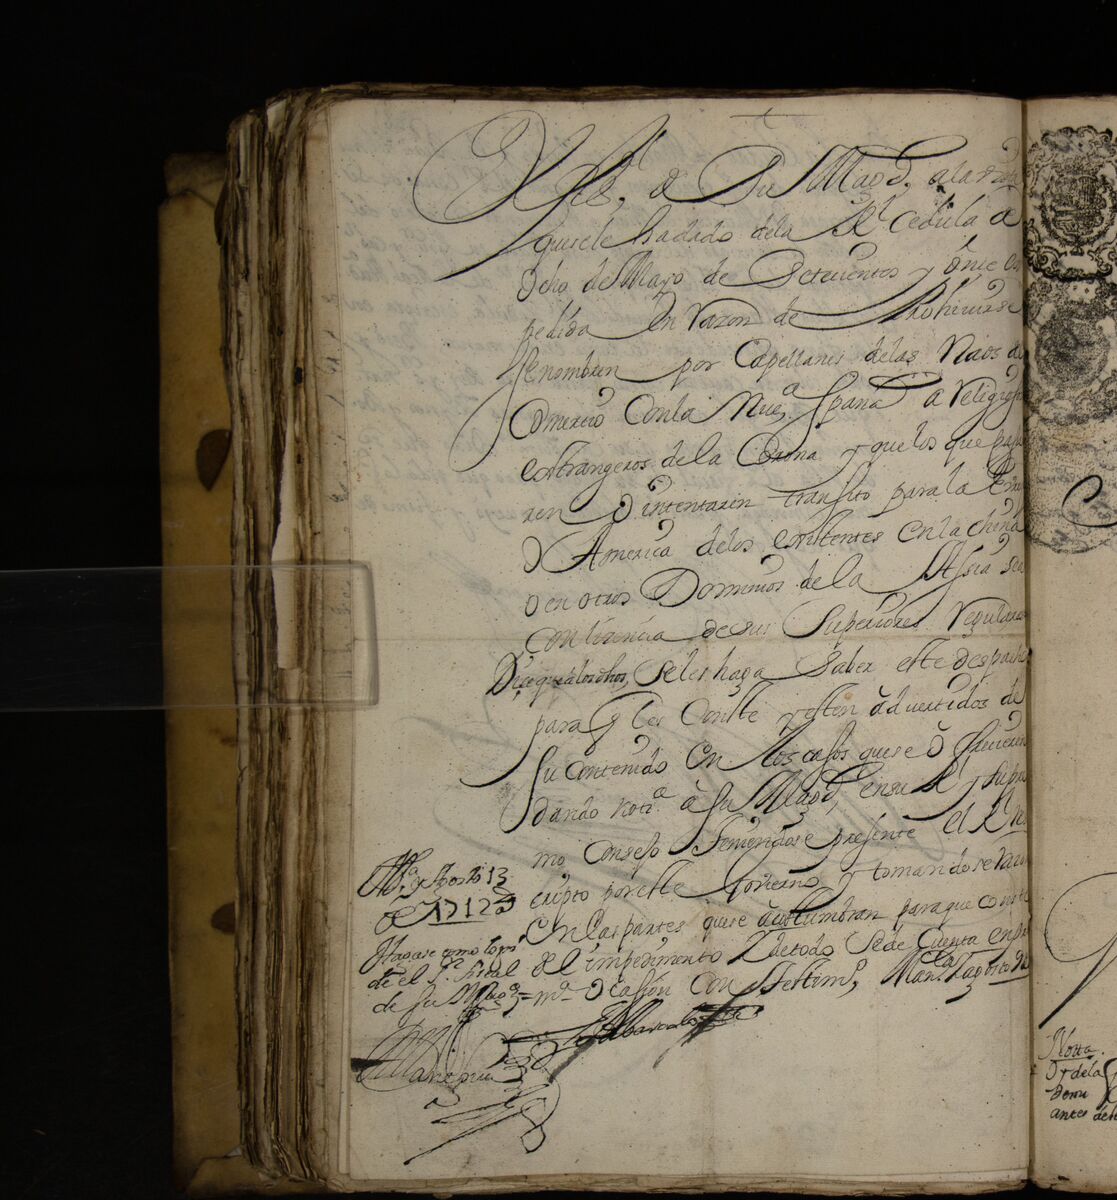 El Fisl, de Su Magd, a la vista
que se le ha dado de la Rl cedula de
Ocho de Mayo de Setecientos y ónze ex
pedida En razon de Prohivirse
Se nombren por Capellanes de las Naos de
Comercio Con la Nueª España a religiosos
extrangeros de la Corona y que los que pasa
ren O intentaren transito para la
d America de los existentes en la china
o en otros Dominios de la Assia sea
con lizencia de sus Superiores regulares
Dice que a los dhos, Se les haga Saber este despacho
para q les Conste y esten ádvertidos de
Su Contenido En los casos que se ôfrecieren
dando notª â Su Magd, en su Rl y Supre
mo Consejo Teniendose presente el Res
cripto por este Govierno y tomandose razon
En las partes que se acostumbran para que conste
el impedimento y de todo Se de Cuenta en pri
mª Ocasion con testimº, Manª y Agosto
Mª y Agosto 13
de 1712
Hagase como lo pi
de el Sr fiscal
de Su Magd
Notta.
de la
antes de